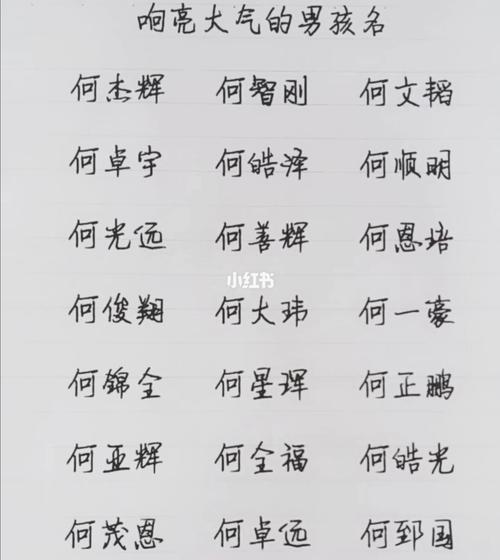 响亮大气的男孩名
何杰辉 何智刚 何文韬
何卓宇 何皓泽 何顺明
何光远 何善辉 何恩培
小红书
何俊翔 何大玮 何一豪
何錦全 何星珲 何正鹏
何亚辉 何全福 何皓光
何茂恩 何卓远 何郅国